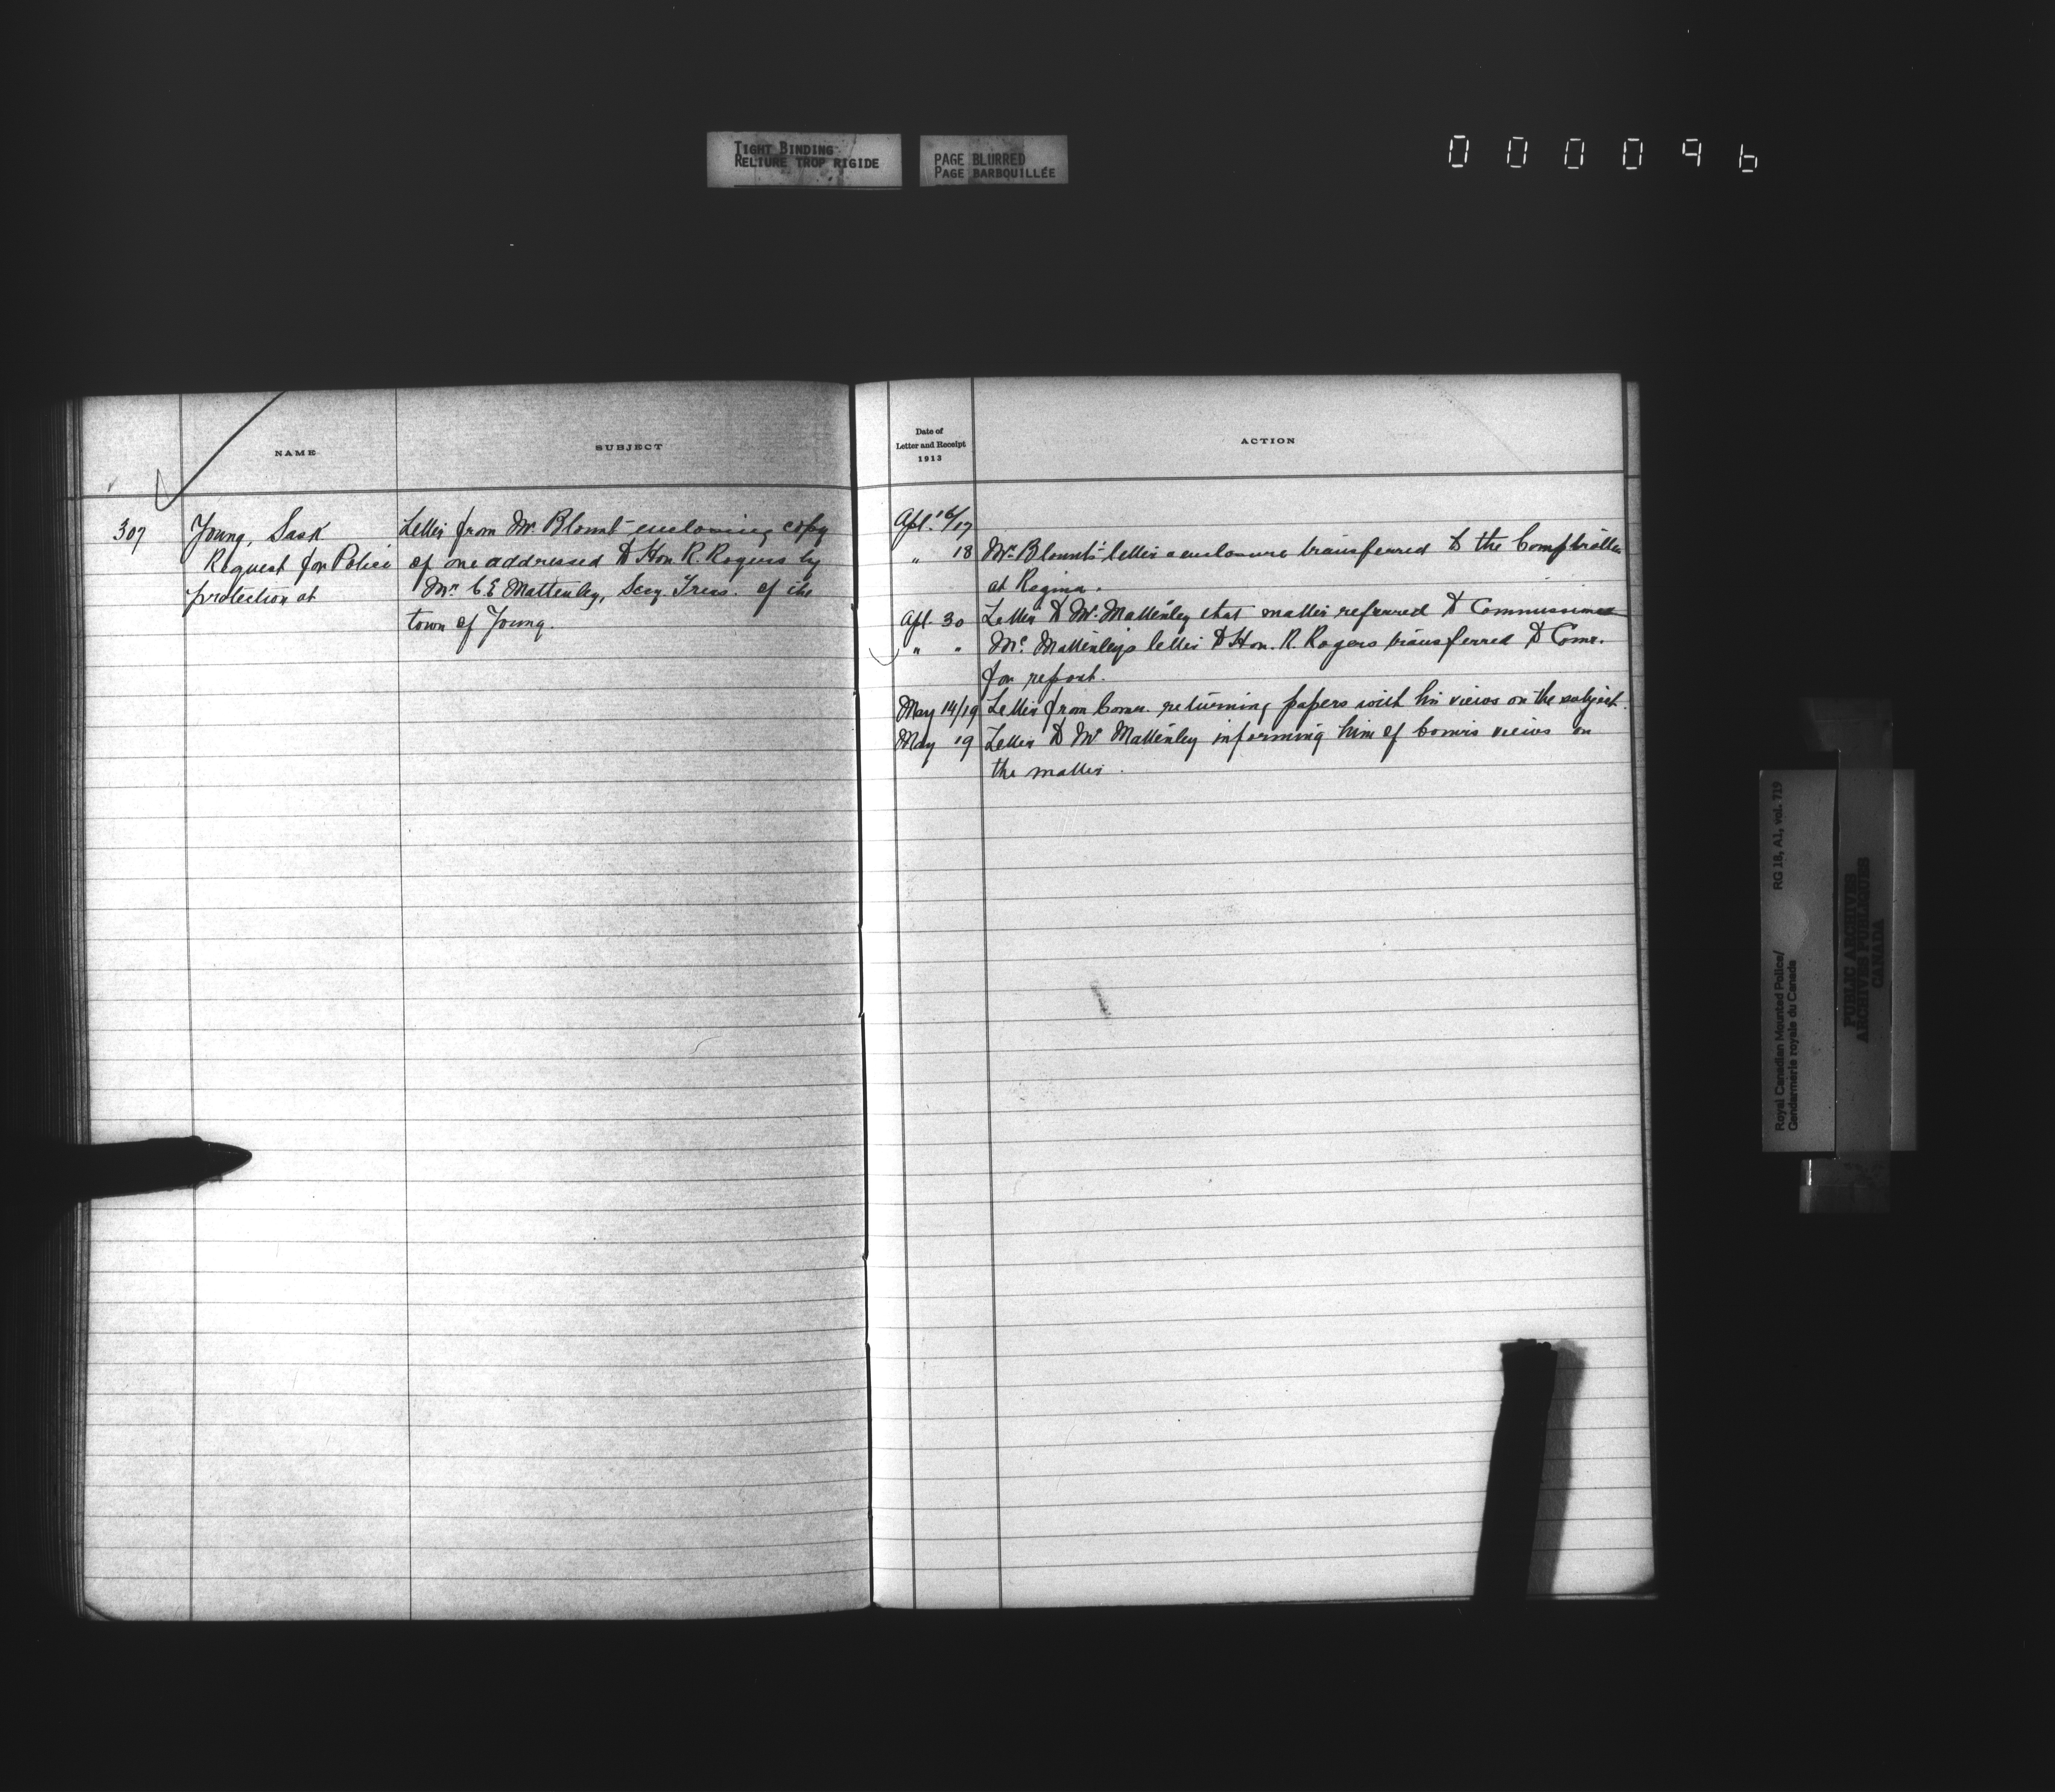 TIGHT BINDING
RELIURE TROP RIGIDE
PAGE BLURRED
PAGE BARBOUILLÉE
000096
NAME
SUBJECT
307
Young, Sask
Request for Police
protection at
Letter from Mr Blount enclosing copy
of one addressed to Hon R. Rogers by
Mr. C.E. Mattenley, Secy Treas. of the
town of Young.
Date of
Letter and Receipt
1913
ACTION
Apl. 16/17
" 18 Mr. Blount's letter & enclosure transferred to the Comptroller
at Regina.
Apl. 30 Letter to Mr. Mattenley that matter referred to Commissioner
" " Mr. Mattenley's letter to Hon. R. Rogers transferred to Comr.
for report.
May 14/19 Letter from Comr. returning papers with his views on the subject.
May 19 Letter to Mr Mattenley informing him of Comrs views on
the matter.
Royal Canadian Mounted Police/
Gendarmerie royale du Canada
RG 18, A1, vol. 719
PUBLIC ARCHIVES
ARCHIVES PUBLIQUES
CANADA